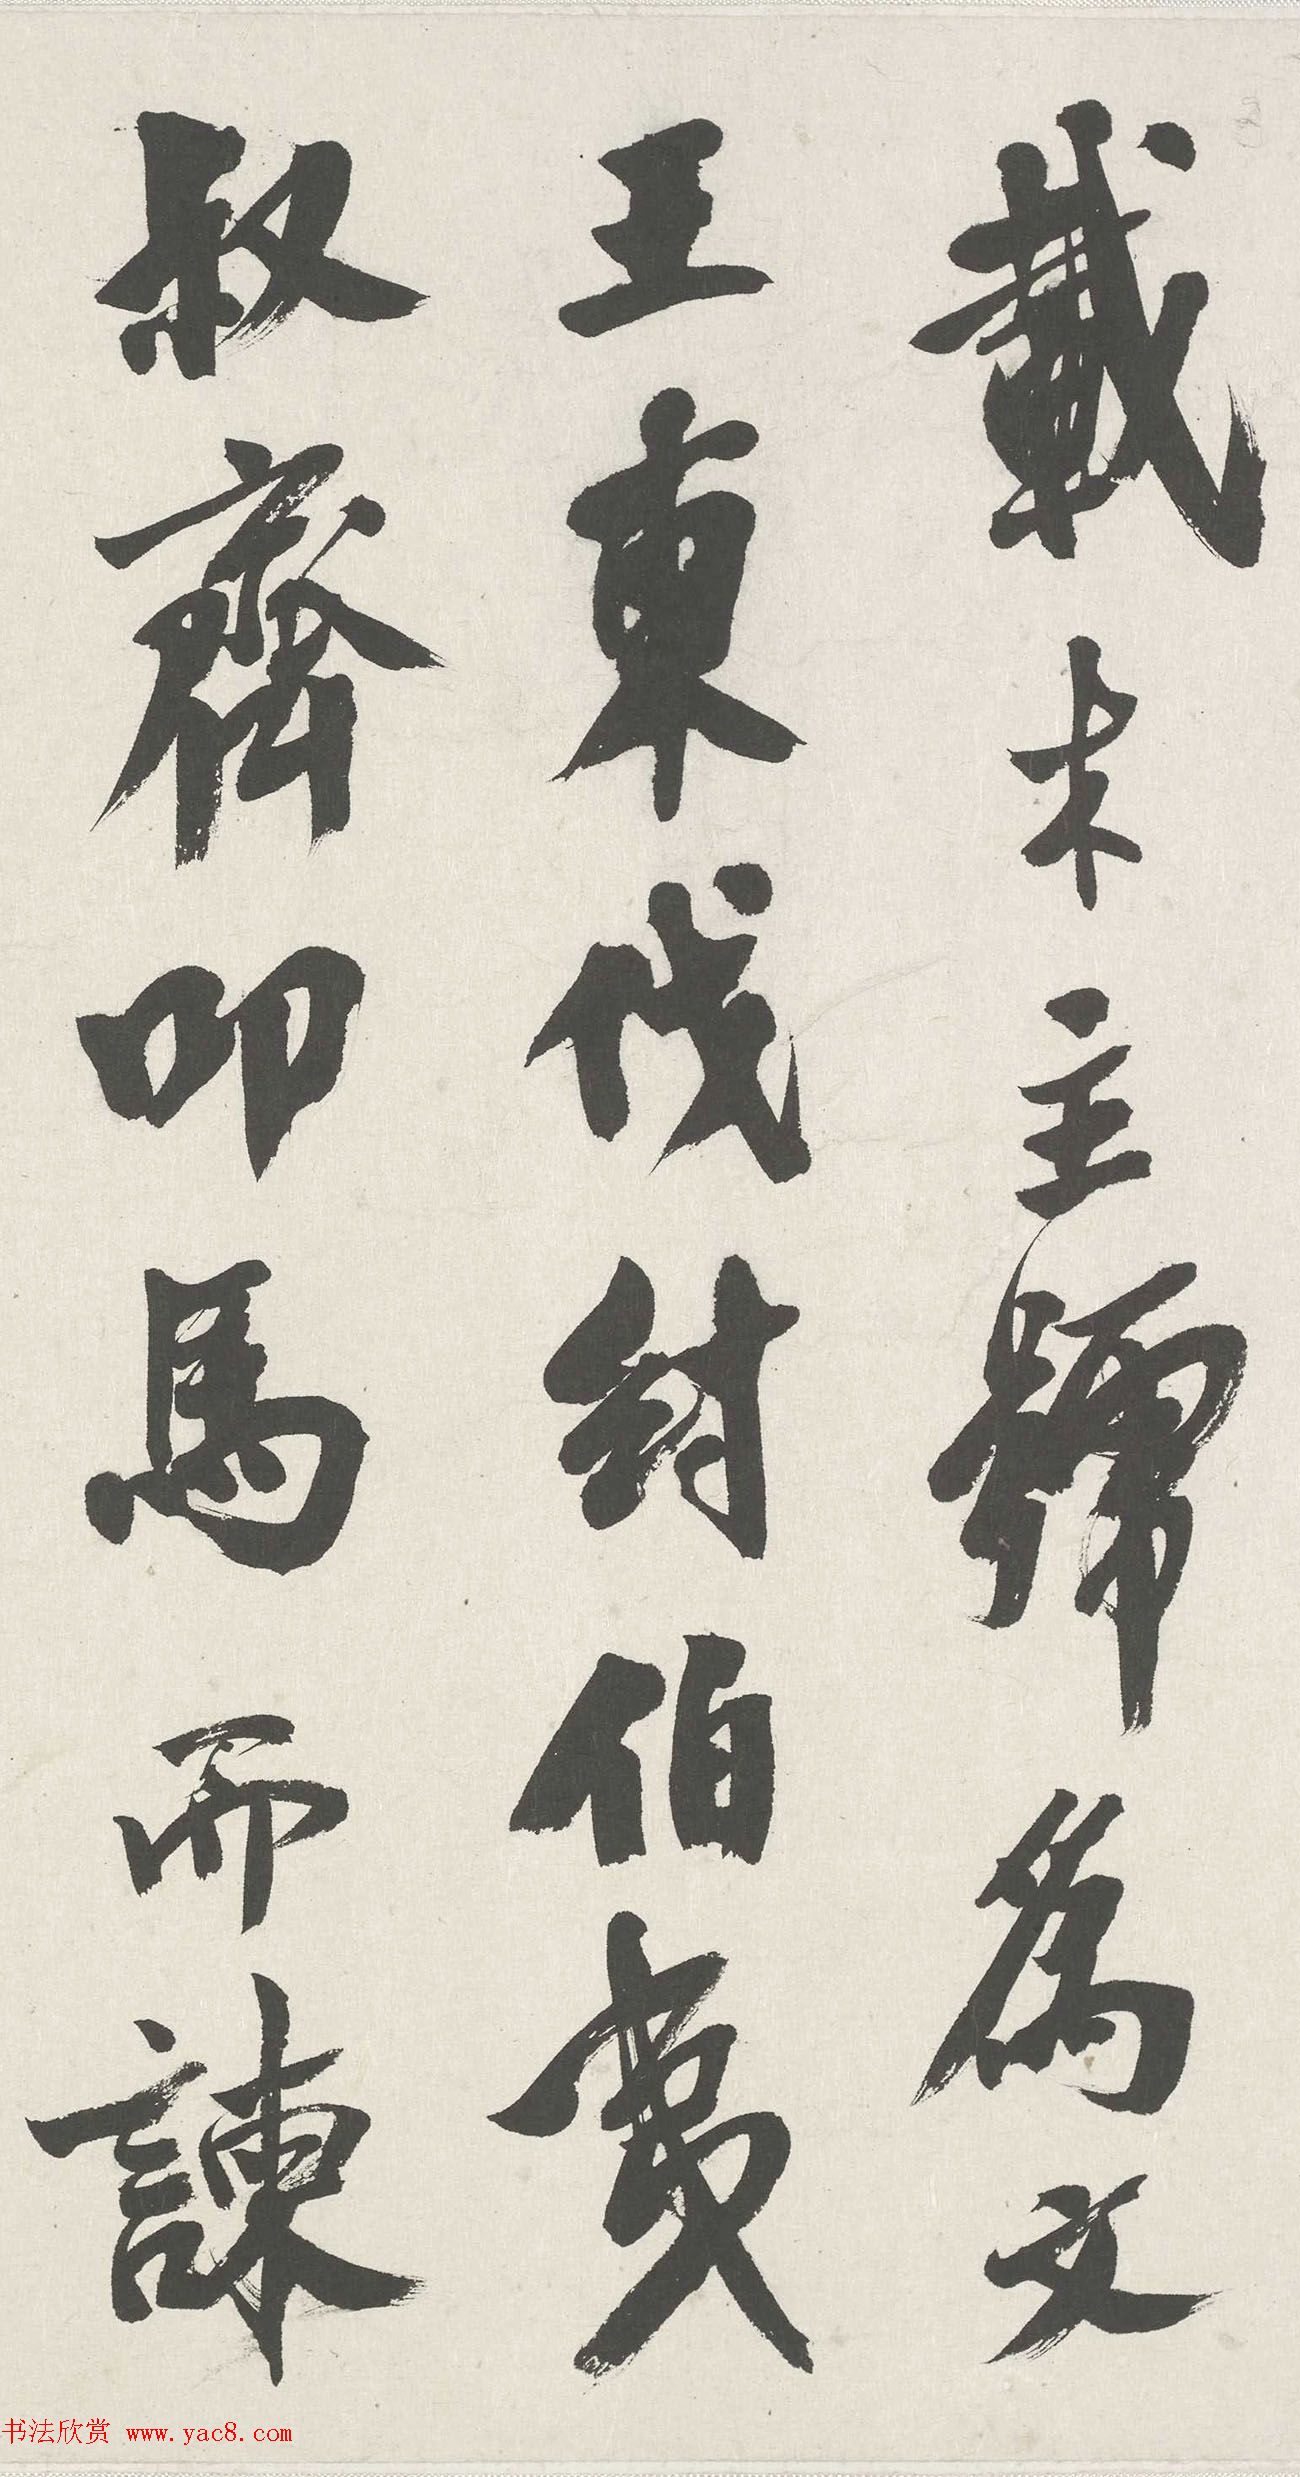 載木主號為文
王東伐紂伯夷
叔齊叩馬而諫
书法欣赏 www.yac8.com